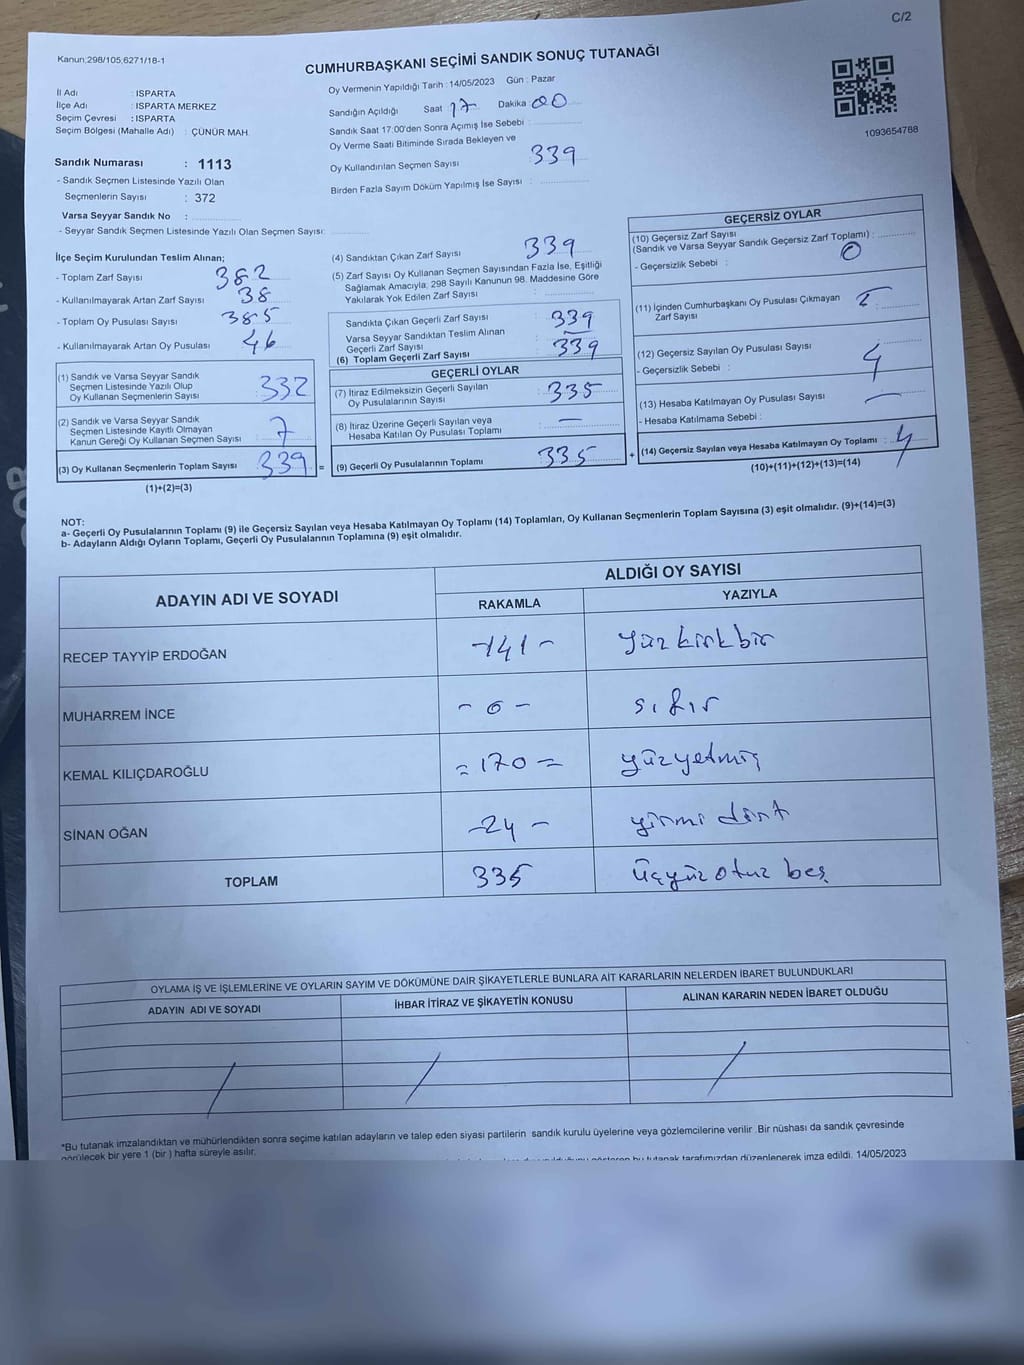 C/2
Kanun;298/105,6271/18-1
CUMHURBAŞKANI SEÇİMİ SANDIK SONUÇ TUTANAĞI
İl Adı : ISPARTA
İlçe Adı : ISPARTA MERKEZ
Seçim Çevresi : ISPARTA
Seçim Bölgesi (Mahalle Adı) : ÇÜNÜR MAH.
Sandık Numarası : 1113
- Sandık Seçmen Listesinde Yazılı Olan
Seçmenlerin Sayısı : 372
Varsa Seyyar Sandık No :
- Seyyar Sandık Seçmen Listesinde Yazılı Olan Seçmen Sayısı:
Oy Vermenin Yapıldığı Tarih : 14/05/2023 Gün : Pazar
Sandığın Açıldığı Saat 17 Dakika : 00
Sandık Saat 17:00'den Sonra Açımış İse Sebebi :
Oy Verme Saati Bitiminde Sırada Bekleyen ve
Oy Kullandırılan Seçmen Sayısı : 339
Birden Fazla Sayım Döküm Yapılmış İse Sayısı :
1093654788
İlçe Seçim Kurulundan Teslim Alınan;
- Toplam Zarf Sayısı : 382
- Kullanılmayarak Artan Zarf Sayısı : 38
- Toplam Oy Pusulası Sayısı : 385
- Kullanılmayarak Artan Oy Pusulası : 46
(1) Sandık ve Varsa Seyyar Sandık
Seçmen Listesinde Yazılı Olup
Oy Kullanan Seçmenlerin Sayısı : 332
(2) Sandık ve Varsa Seyyar Sandık
Seçmen Listesinde Kayıtlı Olmayan
Kanun Gereği Oy Kullanan Seçmen Sayısı : 7
(3) Oy Kullanan Seçmenlerin Toplam Sayısı : 339 =
(1)+(2)=(3)
(4) Sandıktan Çıkan Zarf Sayısı : 339
(5) Zarf Sayısı Oy Kullanan Seçmen Sayısından Fazla İse, Eşitliği
Sağlamak Amacıyla; 298 Sayılı Kanunun 98. Maddesine Göre
Yakılarak Yok Edilen Zarf Sayısı :
Sandıkta Çıkan Geçerli Zarf Sayısı : 339
Varsa Seyyar Sandıktan Teslim Alınan
Geçerli Zarf Sayısı : —
(6) Toplam Geçerli Zarf Sayısı : 339
GEÇERLİ OYLAR
(7) İtiraz Edilmeksizin Geçerli Sayılan
Oy Pusulalarının Sayısı : 335
(8) İtiraz Üzerine Geçerli Sayılan veya
Hesaba Katılan Oy Pusulası Toplamı : —
(9) Geçerli Oy Pusulalarının Toplamı : 335 +
GEÇERSİZ OYLAR
(10) Geçersiz Zarf Sayısı
(Sandık ve Varsa Seyyar Sandık Geçersiz Zarf Toplamı) : 0
- Geçersizlik Sebebi :
(11) İçinden Cumhurbaşkanı Oy Pusulası Çıkmayan
Zarf Sayısı :
(12) Geçersiz Sayılan Oy Pusulası Sayısı : 4
- Geçersizlik Sebebi :
(13) Hesaba Katılmayan Oy Pusulası Sayısı : —
- Hesaba Katılmama Sebebi :
(14) Geçersiz Sayılan veya Hesaba Katılmayan Oy Toplamı : 4
(10)+(11)+(12)+(13)=(14)
NOT:
a- Geçerli Oy Pusulalarının Toplamı (9) ile Geçersiz Sayılan veya Hesaba Katılmayan Oy Toplamı (14) Toplamları, Oy Kullanan Seçmenlerin Toplam Sayısına (3) eşit olmalıdır. (9)+(14)=(3)
b- Adayların Aldığı Oyların Toplamı, Geçerli Oy Pusulalarının Toplamına (9) eşit olmalıdır.
ADAYIN ADI VE SOYADI
ALDIĞI OY SAYISI
RAKAMLA YAZIYLA
RECEP TAYYİP ERDOĞAN -141- yüz kırk bir
MUHARREM İNCE - 0 - sıfır
KEMAL KILIÇDAROĞLU = 170 = yüzyetmiş
SİNAN OĞAN -24- yirmi dört
TOPLAM 335 üçyüz otuz beş
OYLAMA İŞ VE İŞLEMLERİNE VE OYLARIN SAYIM VE DÖKÜMÜNE DAİR ŞİKAYETLERLE BUNLARA AİT KARARLARIN NELERDEN İBARET BULUNDUKLARI
ADAYIN ADI VE SOYADI İHBAR İTİRAZ VE ŞİKAYETİN KONUSU ALINAN KARARIN NEDEN İBARET OLDUĞU
*Bu tutanak imzalandıktan ve mühürlendikten sonra seçime katılan adayların ve talep eden siyasi partilerin sandık kurulu üyelerine veya gözlemcilerine verilir .Bir nüshası da sandık çevresinde
görülecek bir yere 1 (bir ) hafta süreyle asılır.
bu tutanak tarafımızdan düzenlenerek imza edildi. 14/05/2023